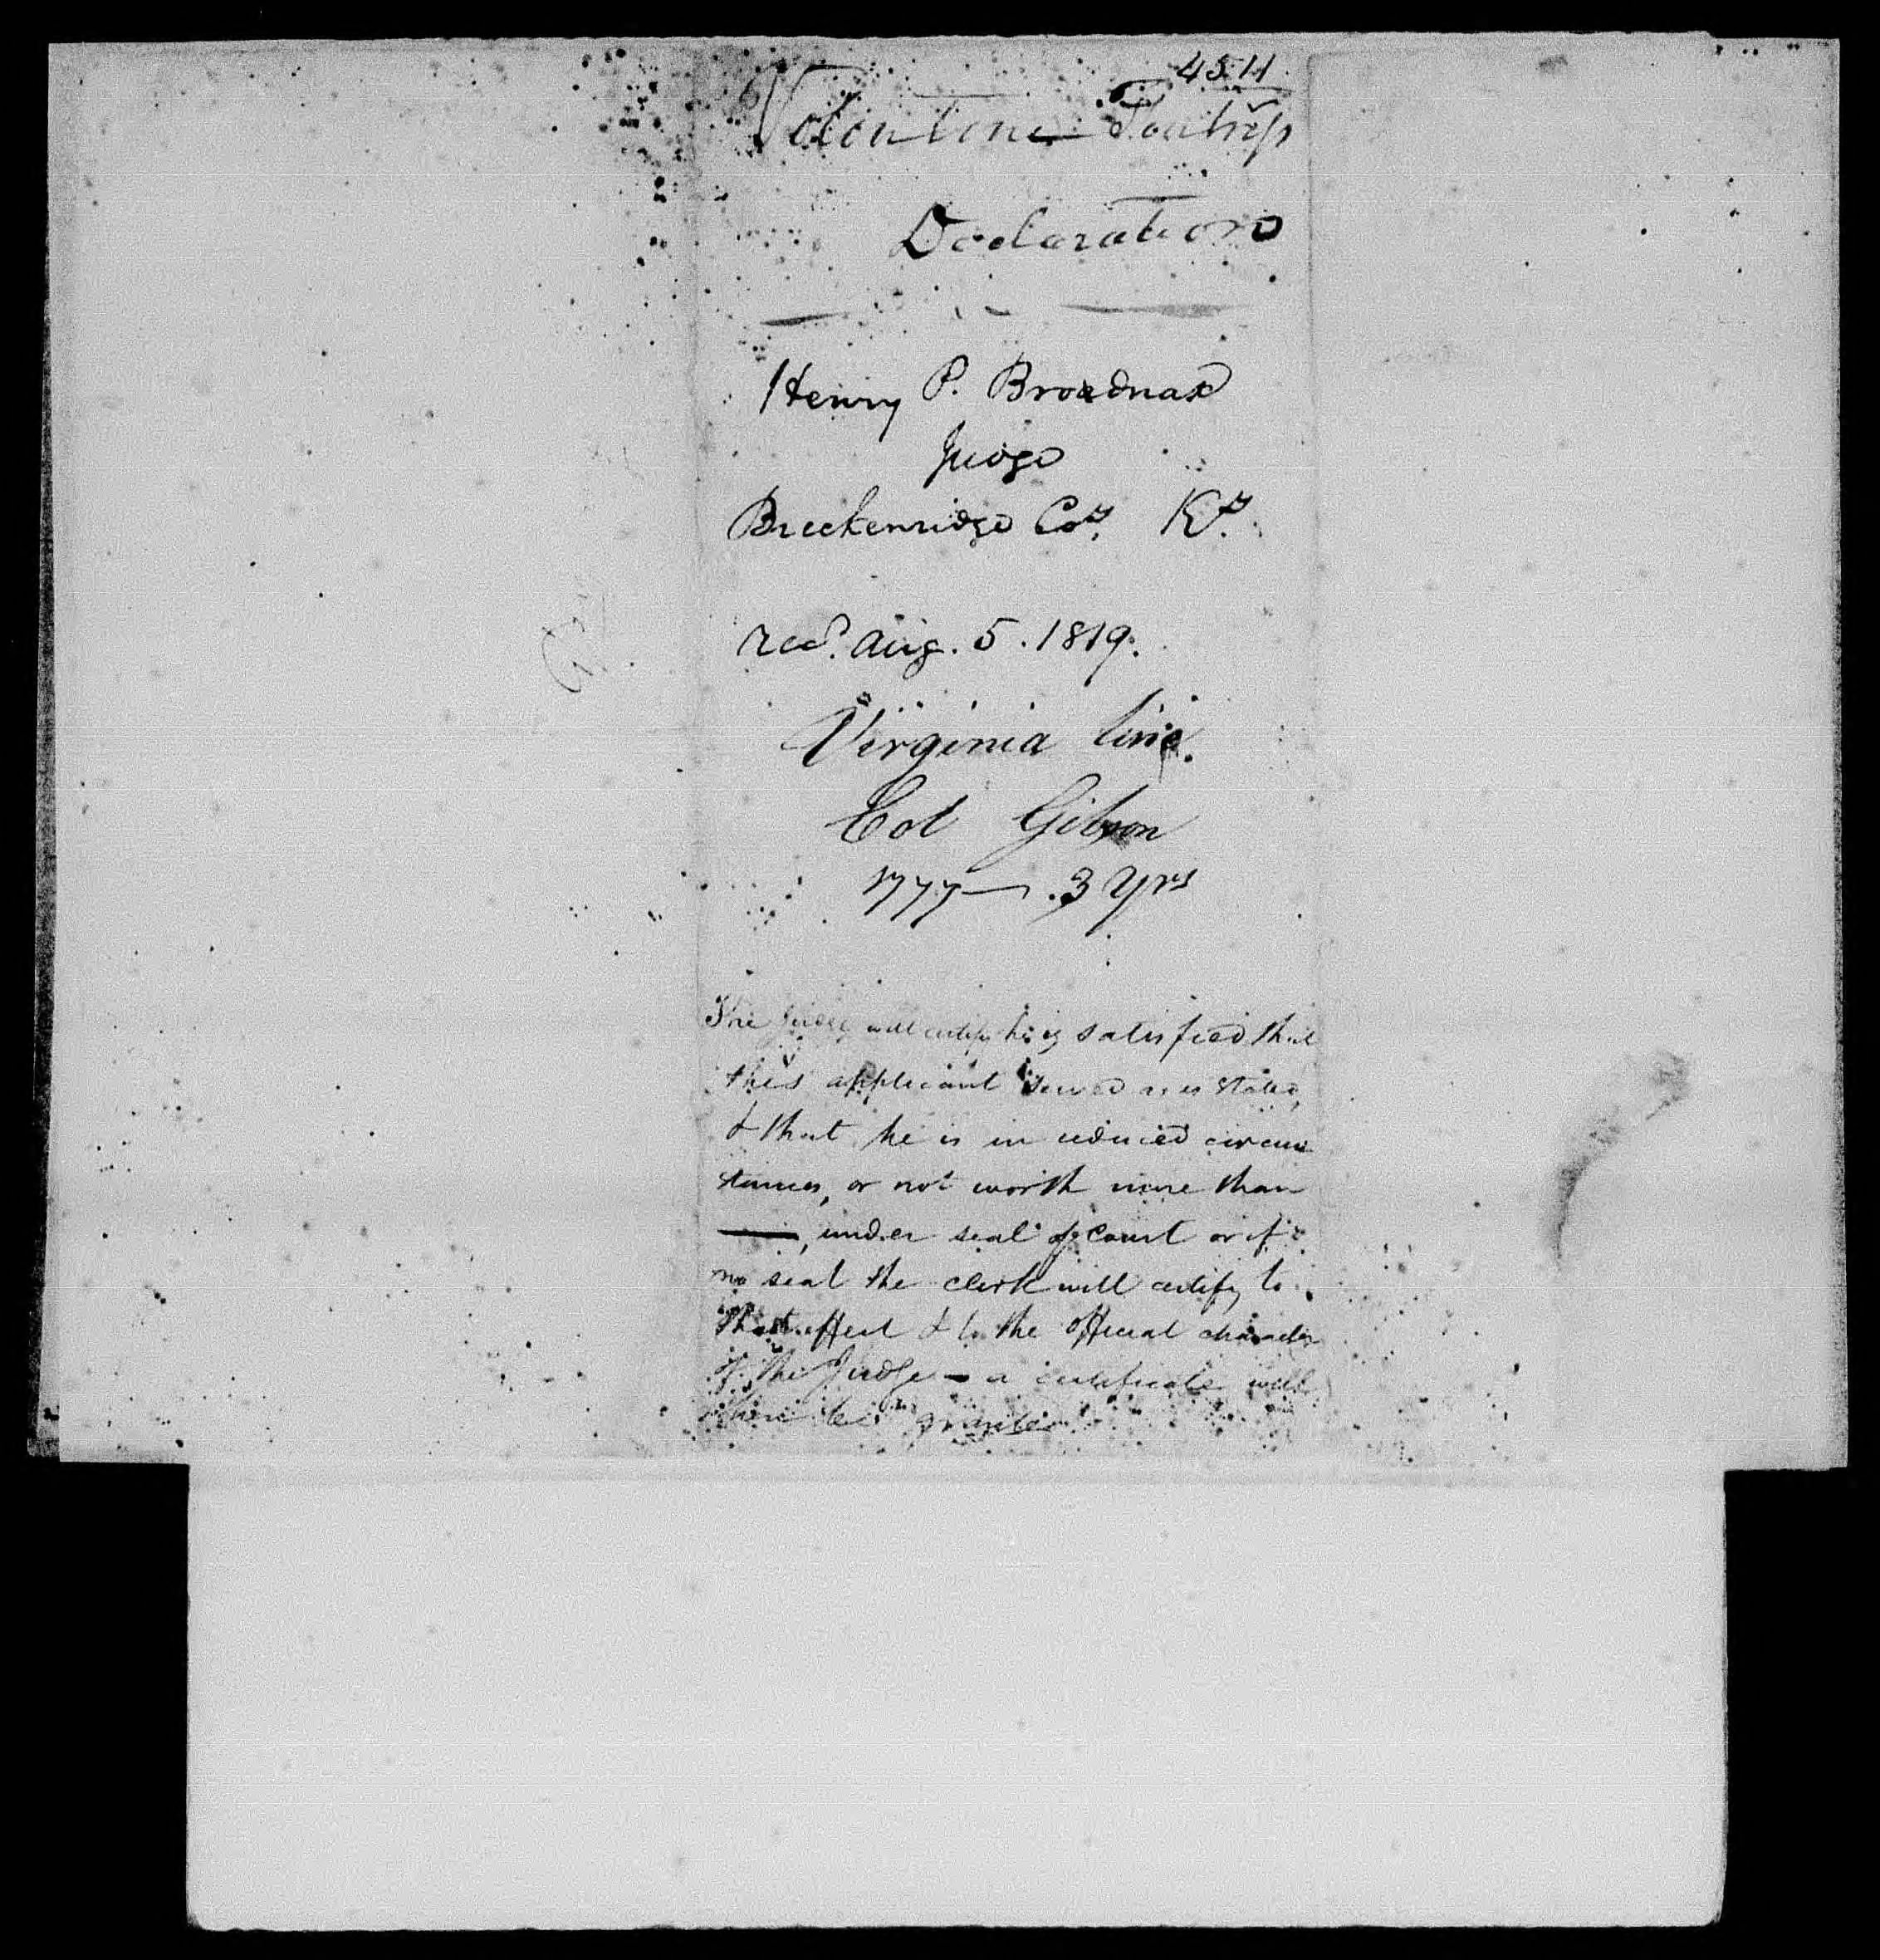 4511
Valentine
Declaration
Henry P. Broadnax
Judge
Breckenridge Coy. Ky.
recd. Aug. 5. 1819.
Virginia line.
Col Gibson
1777— 3 Yrs
The Judge will certify he is satisfied that
this applicant served as is stated,
& that he is in reduced circum
stances, or not worth more than
, under seal of Court or if
no seal the clerk will certify to
that effect & to the official character
of the Judge — a certificate will
then be granted